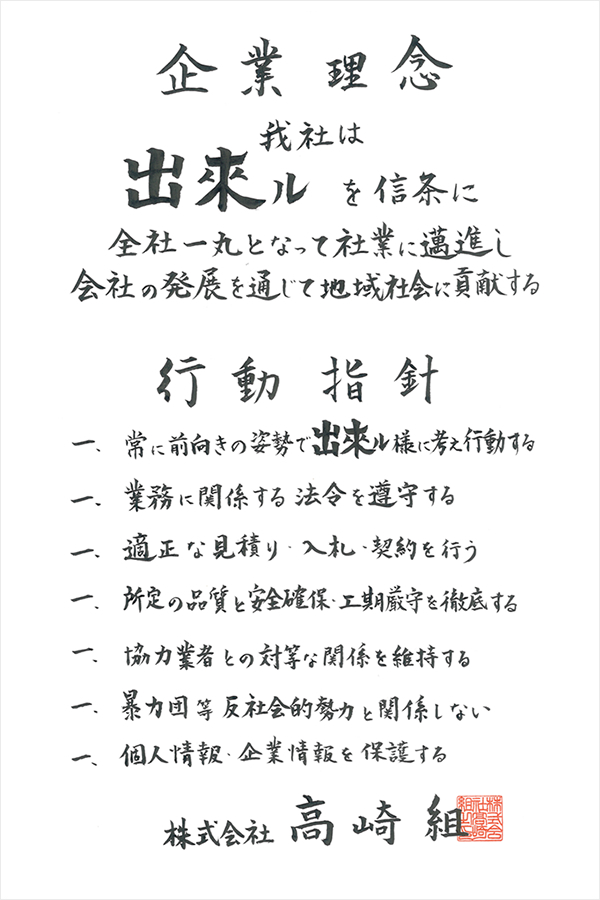 企業理念
我社は
出來ル を信条に
全社一丸となって社業に邁進し
会社の発展を通じて地域社会に貢献する
行動指針
一、常に前向きの姿勢で出來ル様に考え行動する
一、業務に関係する法令を遵守する
一、適正な見積り・入札・契約を行う
一、所定の品質と安全確保・工期厳守を徹底する
一、協力業者との対等な関係を維持する
一、暴力団等反社会的勢力と関係しない
一、個人情報・企業情報を保護する
株式会社 高崎組